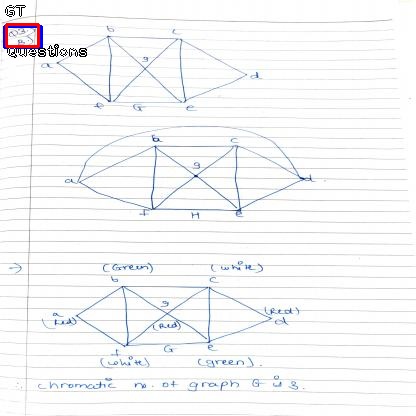 GT
Questions
b c
g
a d
f G e
b c
g
a d
f H e
→ (Green) (white)
b c
g
a (Red) (Red) (Red) d
f G e
(white) (green).
∴ chromatic no. of graph G is 3.